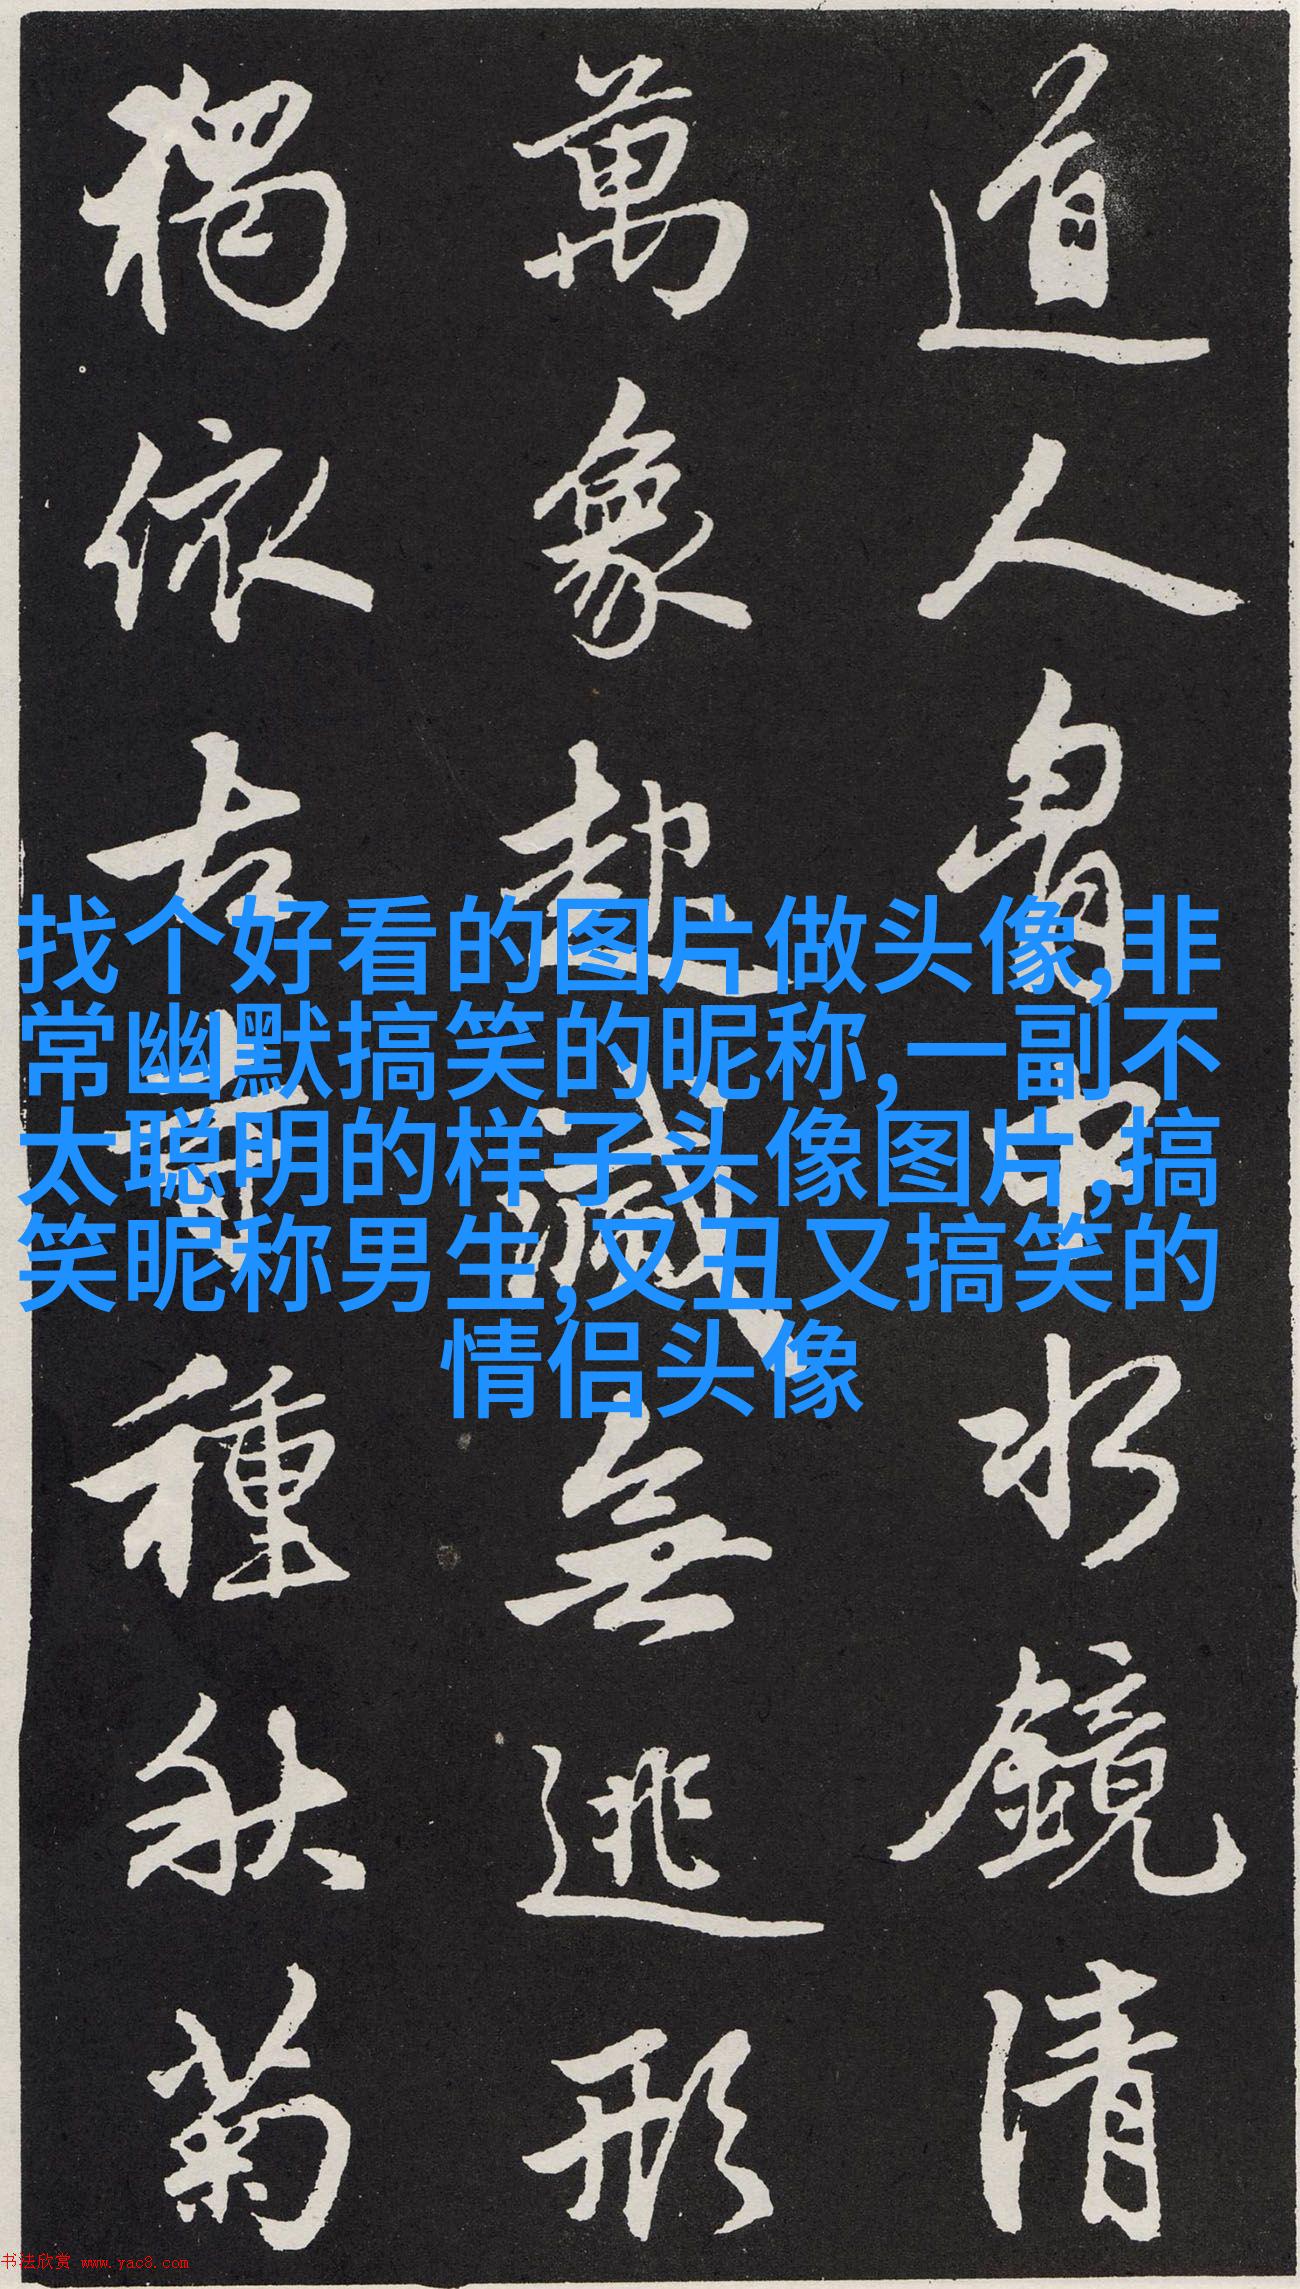 道人胷中水鏡清
萬象起滅無逃形
獨依古寺種秋菊
找个好看的图片做头像,非
常幽默搞笑的昵称,一副不
太聪明的样子头像图片,搞
笑昵称男生,又丑又搞笑的
情侣头像
书法欣赏 www.yac8.com